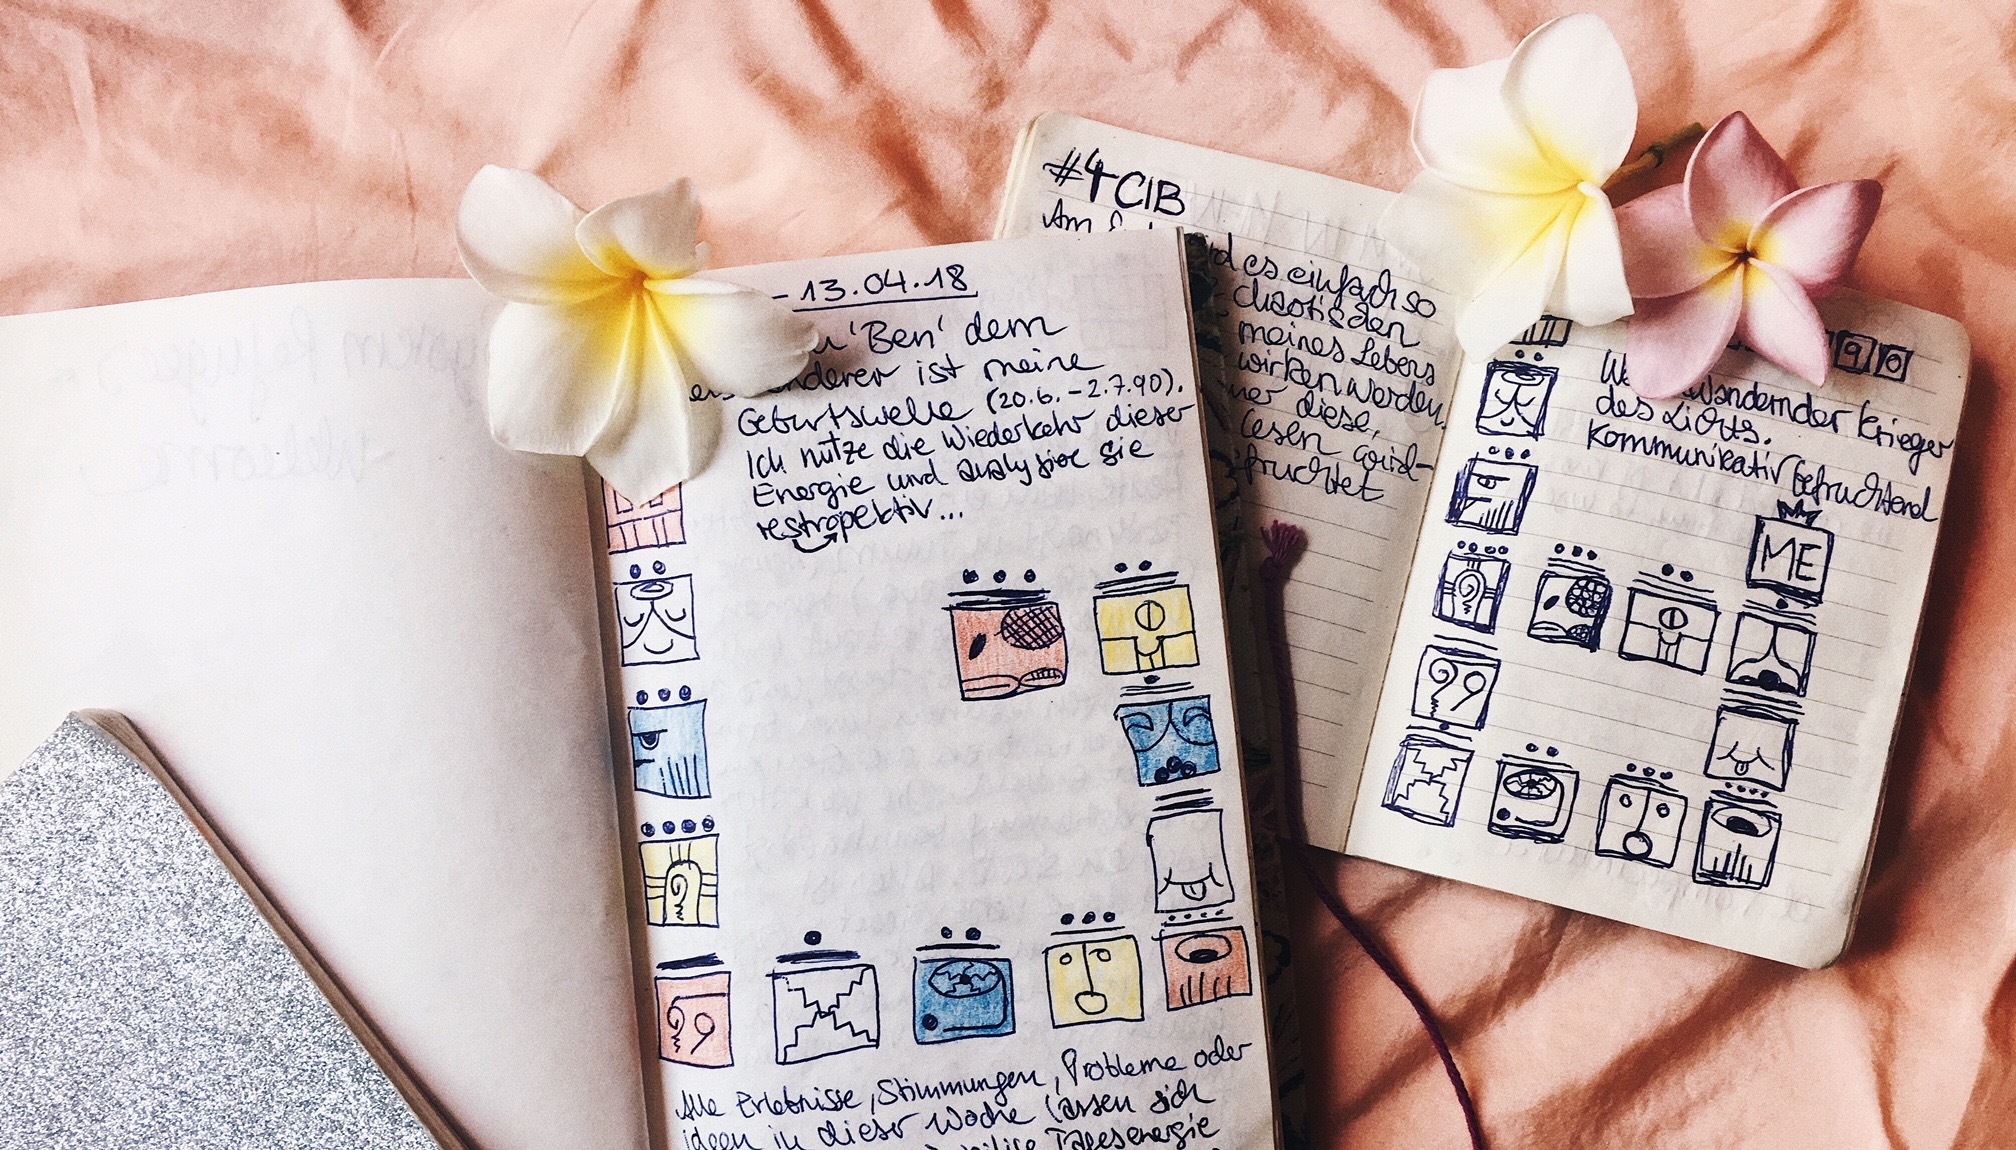 - 13.04.18
'Ben' dem
anderer ist meine
Geburtswelle (20.6. - 2.7.90).
Ich nutze die Wiederkehr dieser
Energie und analysiere sie
restropektiv...
Alle Erlebnisse, Stimmungen, Probleme oder
Ideen in dieser Woche lassen sich
Tagesenergie
#4 CIB
Am
es einfach so
chaotisch
meines Lebens
wirken werden.
diese,
lesen wird
fruchtet
90
Wandernder Krieger
des Lichts.
Kommunikativ befruchtend
ME